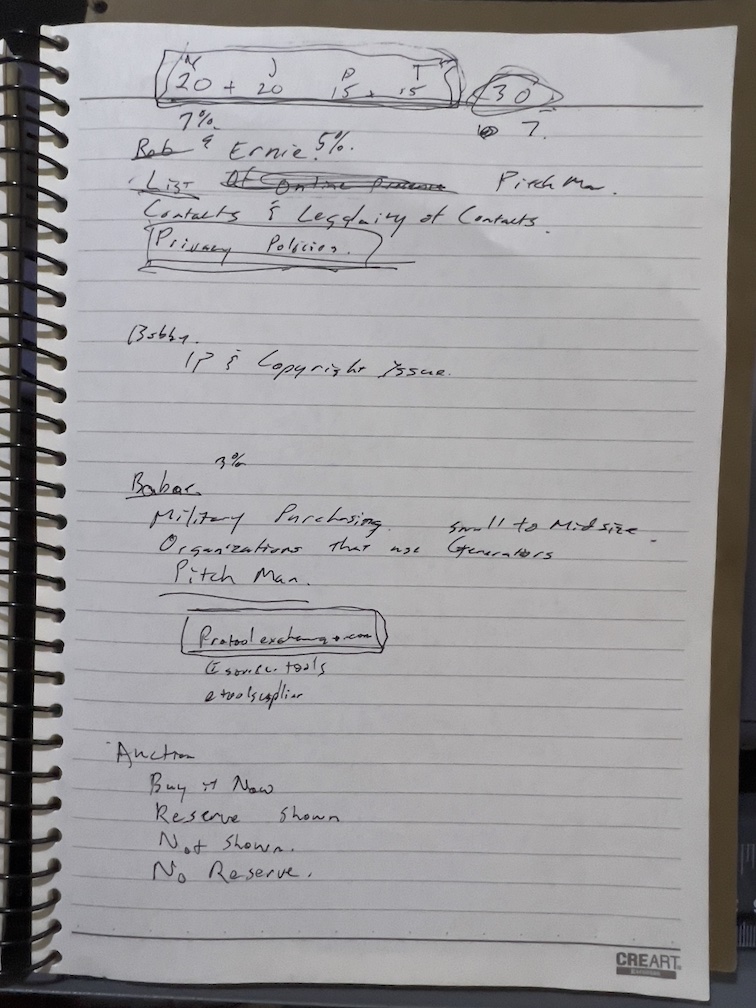 N J P T
20 + 20 15 + 15 30
7% 7.
Rob & Ernie. 5%.
List Of Online Presence Pitch Man.
Contacts & Legdairy of Contacts.
Privacy Policies.
Bobby.
IP & Copyright issue.
3%
Babac
Military Purchasing. small to Midsize.
Organizations that use Generators
Pitch Man.
Protoolexchange.com
Eservice.tools
etoolsupplier
Auction
Buy it Now
Reserve Shown
Not Shown.
No Reserve.
CREART